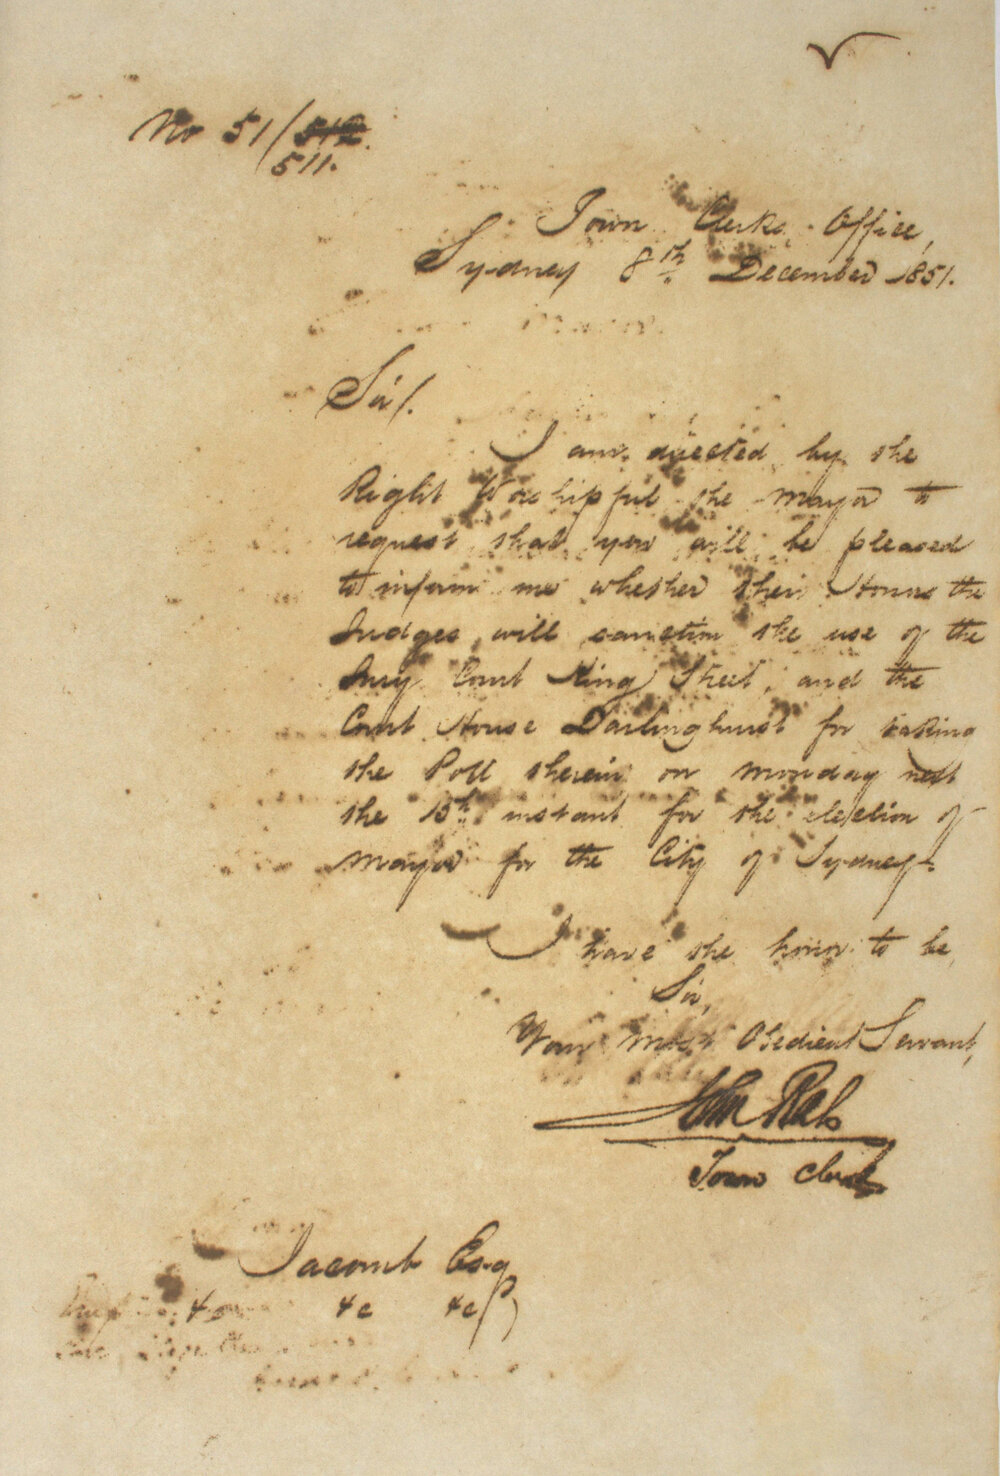 No 51/512.
511.
Town Clerks Office,
Sydney 8th December 1851.
Sir/.
I am directed by the
Right Worshipful the Mayor to
request that you will be pleased
to inform me whether their Honors the
Judges will sanction the use of the
Jury Court King Street, and the
Court House Darlinghurst for taking
the Poll therein on Monday next
the 15th instant for the election of
Mayor for the City of Sydney.
I have the honor to be,
Sir,
Your Most Obedient Servant,
John Rae
Town Clerk
Jacomb Esq
&c &c &c